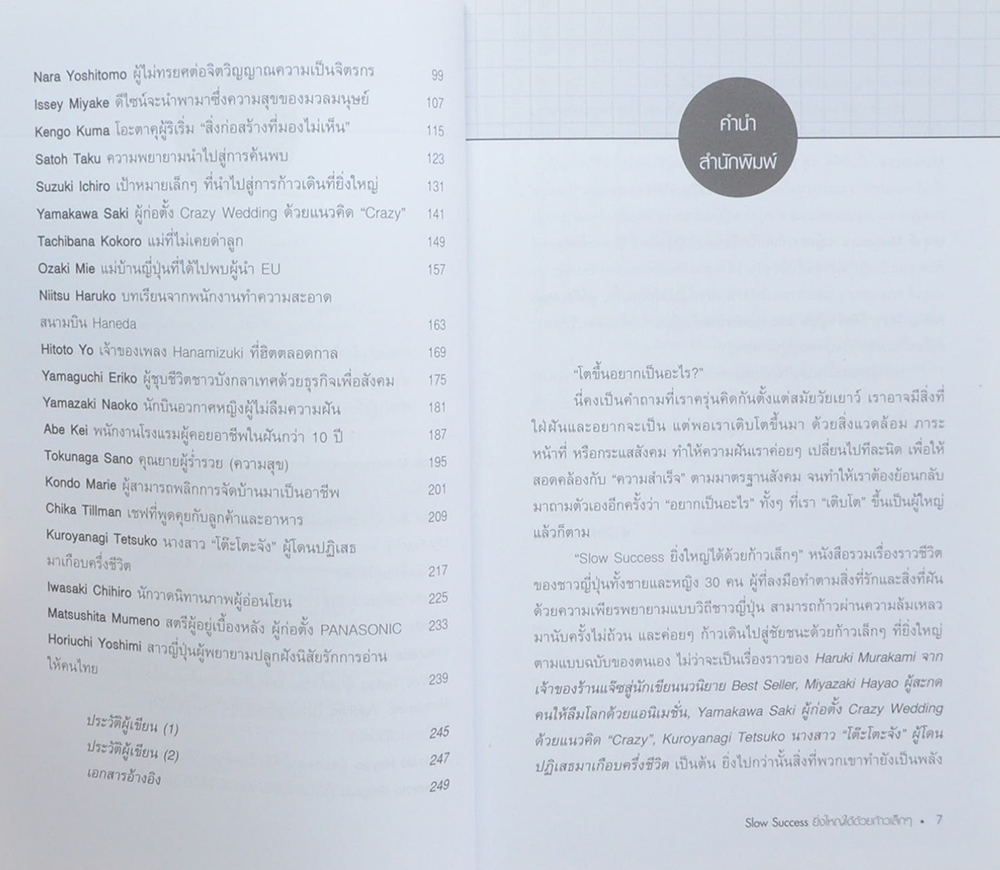 Nara Yoshitomo ผู้ไม่ทรยศต่อจิตวิญญาณความเป็นจิตรกร 99
Issey Miyake ดีไซน์จะนำพามาซึ่งความสุขของมวลมนุษย์ 107
Kengo Kuma โอะตาคุผู้ริเริ่ม “สิ่งก่อสร้างที่มองไม่เห็น” 115
Satoh Taku ความพยายามนำไปสู่การค้นพบ 123
Suzuki Ichiro เป้าหมายเล็กๆ ที่นำไปสู่การก้าวเดินที่ยิ่งใหญ่ 131
Yamakawa Saki ผู้ก่อตั้ง Crazy Wedding ด้วยแนวคิด “Crazy” 141
Tachibana Kokoro แม่ที่ไม่เคยด่าลูก 149
Ozaki Mie แม่บ้านญี่ปุ่นที่ได้ไปพบผู้นำ EU 157
Niitsu Haruko บทเรียนจากพนักงานทำความสะอาด
สนามบิน Haneda 163
Hitoto Yo เจ้าของเพลง Hanamizuki ที่ฮิตตลอดกาล 169
Yamaguchi Eriko ผู้ชุบชีวิตชาวบังกลาเทศด้วยธุรกิจเพื่อสังคม 175
Yamazaki Naoko นักบินอวกาศหญิงผู้ไม่ลืมความฝัน 181
Abe Kei พนักงานโรงแรมผู้คอยอาชีพในฝันกว่า 10 ปี 187
Tokunaga Sano คุณยายผู้ร่ำรวย (ความสุข) 195
Kondo Marie ผู้สามารถพลิกการจัดบ้านมาเป็นอาชีพ 201
Chika Tillman เชฟที่พูดคุยกับลูกค้าและอาหาร 209
Kuroyanagi Tetsuko นางสาว “โต๊ะโตะจัง” ผู้โดนปฏิเสธ
มาเกือบครึ่งชีวิต 217
Iwasaki Chihiro นักวาดนิทานภาพผู้อ่อนโยน 225
Matsushita Mumeno สตรีผู้อยู่เบื้องหลัง ผู้ก่อตั้ง PANASONIC 233
Horiuchi Yoshimi สาวญี่ปุ่นผู้พยายามปลูกฝังนิสัยรักการอ่าน
ให้คนไทย 239
ประวัติผู้เขียน (1) 245
ประวัติผู้เขียน (2) 247
เอกสารอ้างอิง 249
คำนำ
สำนักพิมพ์
“โตขึ้นอยากเป็นอะไร?”
นี่คงเป็นคำถามที่เราครุ่นคิดกันตั้งแต่สมัยวัยเยาว์ เราอาจมีสิ่งที่
ใฝ่ฝันและอยากจะเป็น แต่พอเราเติบโตขึ้นมา ด้วยสิ่งแวดล้อม ภาระ
หน้าที่ หรือกระแสสังคม ทำให้ความฝันเราค่อยๆ เปลี่ยนไปทีละนิด เพื่อให้
สอดคล้องกับ “ความสำเร็จ” ตามมาตรฐานสังคม จนทำให้เราต้องย้อนกลับ
มาถามตัวเองอีกครั้งว่า “อยากเป็นอะไร” ทั้งๆ ที่เรา “เติบโต” ขึ้นเป็นผู้ใหญ่
แล้วก็ตาม
“Slow Success ยิ่งใหญ่ได้ด้วยก้าวเล็กๆ” หนังสือรวมเรื่องราวชีวิต
ของชาวญี่ปุ่นทั้งชายและหญิง 30 คน ผู้ที่ลงมือทำตามสิ่งที่รักและสิ่งที่ฝัน
ด้วยความเพียรพยายามแบบวิถีชาวญี่ปุ่น สามารถก้าวผ่านความล้มเหลว
มานับครั้งไม่ถ้วน และค่อยๆ ก้าวเดินไปสู่ชัยชนะด้วยก้าวเล็กๆ ที่ยิ่งใหญ่
ตามแบบฉบับของตนเอง ไม่ว่าจะเป็นเรื่องราวของ Haruki Murakami จาก
เจ้าของร้านแจ๊ซสู่นักเขียนนวนิยาย Best Seller, Miyazaki Hayao ผู้สะกด
คนให้ลืมโลกด้วยแอนิเมชั่น, Yamakawa Saki ผู้ก่อตั้ง Crazy Wedding
ด้วยแนวคิด “Crazy”, Kuroyanagi Tetsuko นางสาว “โต๊ะโตะจัง” ผู้โดน
ปฏิเสธมาเกือบครึ่งชีวิต เป็นต้น ยิ่งไปกว่านั้นสิ่งที่พวกเขาทำยังเป็นพลัง
Slow Success ยิ่งใหญ่ได้ด้วยก้าวเล็กๆ • 7